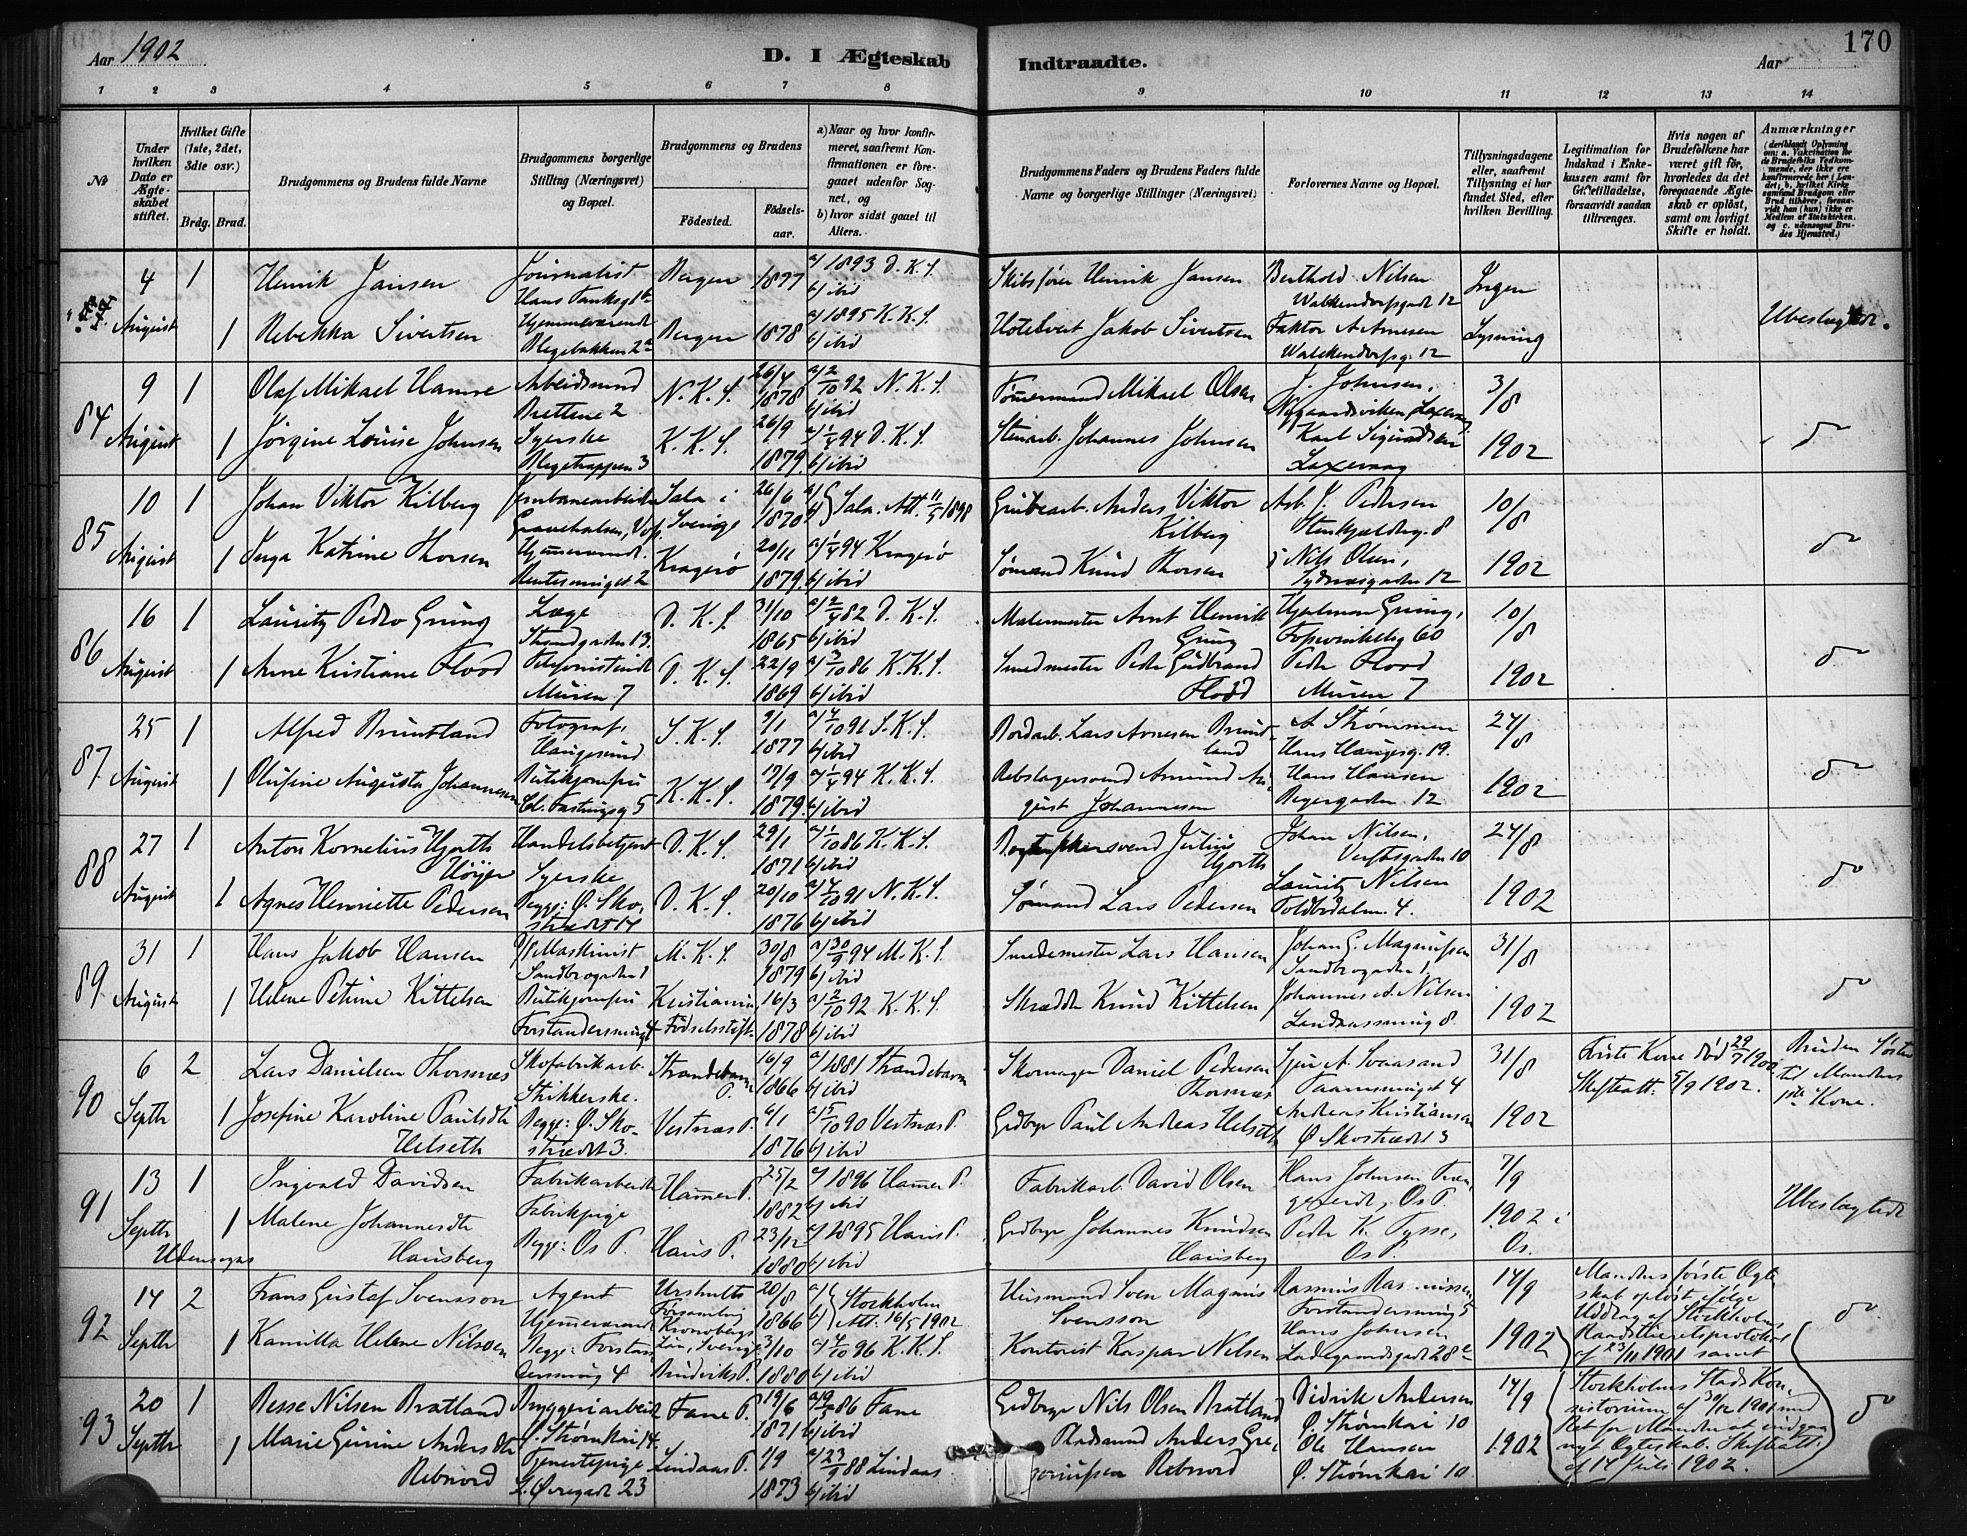 Aar 1902
D. I Ægteskab
Indtraadte.
Aar
170
1 2 3 4 5 6 7 8 9 10 11 12 13 14
No
Under hvilken Dato er Ægteskabet stiftet.
Hvilket Gifte (1ste, 2det, 3die osv.)
Brdg. Brud.
Brudgommens og Brudens fulde Navne
Brudgommens borgerlige Stilling (Næringsvei) og Bopæl.
Brudgommens og Brudens
Fødested.
Fødselsaar.
a) Naar og hvor konfirmeret, saafremt Konfirmationen er foregaaet udenfor Sognet, og
b) hvor sidst gaaet til Alters.
Brudgommens Faders og Brudens Faders fulde Navne og borgerlige Stillinger (Næringsvei)
Forlovernes Navne og Bopæl.
Tillysningsdagene eller, saafremt Tillysning ei har fundet Sted, efter hvilken Bevilling.
Legitimation for Indskud i Enkekassen samt for Giftetilladelse, forsaavidt saadan tiltrænges.
Hvis nogen af Brudefolkene har været gift før, hvorledes da det foregaaende Ægteskab er opløst, samt om lovligt Skifte er holdt.
Anmærkninger (deriblandt Oplysning om: a. Vakcination for de Brudefolks Vedkommende, der ikke ere konfirmerede her i Landet; b. hvilket Kirkesamfund Brudgom eller Brud tilhører, forsaavidt han (hun) ikke er Medlem af Statskirken, og c. udensogns Brudes Hjemsted.)
4 August 1 Henrik Jansen Journalist Hans Tanksgt Bergen 1877 a/ 1893 D. K. S. b/ ibid Skibsfører Henrik Jansen Berthold Nilsen Walkendorfsgade 12 Ingen
1 Rebekka Sivertsen Hjemmeværende Blegebakken 2a Bergen 1878 a/ 1895 K. K. S. b/ ibid Hotelvert Jakob Sivertsen Faktor A Arnesen Walckendorfsg. 12 Lysning Ubeslægtede.
84 9 August 1 Olaf Mikael Hamre Arbeidsmand Brettene 2 N. K. S. 26/4 1878 a/ 2/10 92 N. K. S. b/ ibid Tømermand Mikael Olsen J. Johnsen, 3/8
1 Jørgine Louise Johnsen Syerske Blegetrappen 3 K. K. S. 26/9 1879 a/ 1/4 94 D. K. S. b/ ibid Stenarb. Johannes Johnsen Karl Sigurdsen Laxevaag 1902 do
85 10 August 1 Johan Viktor Kilberg Jernbanearbeider Gravehalsen, Vos Sala i Sverige 26/6 1870 a/ b/ Sala. Att. 11/5 1898 Grubearb. Anders Viktor Kilberg Arb. J. Pedersen Stenkjelderg. 8 10/8
1 Inga Katrine Thorsen Hjemmeværende. Rentesmuget 2 Kragerø 20/11 1879. a/ 1/4 94 Kragerø b/ ibid Sømand Knud Thorsen Nils Olsen, Sydnæsgaden 12 1902 do
86 16 August 1 Lauritz Pedro Grung Læge Strandgaden 13. D. K. S. 31/10 1865 a/ 2/4 82 D. K. S. b/ ibid Malermester Arnt Henrik Grung Hjalmar Grung, Fosvinkelsg 60 10/8
1 Anne Kristiane Flood Telefonistinde Muren 7 D. K. S. 22/9 1869 a/ 3/10 86 K. K. S. b/ ibid Smedmester Peder Gudbrand Flood Peder Flood Muren 7 1902 do
87 25 August 1 Alfred Bruntland Fotograf, Haugesund S. K. S. 9/1 1877 a/ 4/10 91 S. K. S. b/ ibid Bordarb. Lars Arnesen Bruntland A Strømmen Hans Haugesg. 19. 24/8
1 Olufine Augusta Johannesen Butikjomfru Cl. Fastingsg 5 K. K. S. 17/9 1879. a/ 1/4 94 K. K. S. b/ ibid Rebslagersvend Amund August Johannesen Hans Hansen Bergergaden 12 1902 do
88 27 August 1 Anton Kornelius Hjorth Höyer Handelsbetjent D. K. S. 29/1 1871 a/ 1/10 86 K. K. S. b/ ibid Bogtrykkersvend Julius Hjorth Johan Nilsen, Verftsgaden 10 24/8
1 Agnes Henriette Pedersen Syerske Begge: Ø. Skostrædet 14 D. K. S. 20/10 1876 a/ 4/10 91 N. K. S. b/ ibid Sømand Lars Pedersen Lauritz Nilsen Toldbodalm. 4. 1902 do
89 31 August 1 Hans Jakob Hansen Maskinist Sandbrogaden 1 M. K. S. 30/8 1879 a/ 30/9 94 M. K. S. b/ ibid Smedemester Lars Hansen Johan G. Magnussen Sandbrogaden 1, 31/8
1 Helene Petrine Kittelsen Butikjomfru Forstandersmuget 4 Kristiania Fødselsstift. 16/3 1878 a/ 2/10 92 K. K. S. b/ ibid Skrædder Knud Kittelsen Johannes A. Nilsen Landaassmug 8. 1902 do
90 6 Septbr 2 Lars Danielsen Thorsnæs Skofabrikarb. Strandebarm P. 16/9 1866 a/ 1881 Strandebarm Skomager Daniel Pedersen Thorsnæs Sjur A. Svaasand Taarnsmuget 4 31/8 Første Kone død 29/7 1900. Skifteatt. 5/9 1902. Bruden Søster til Mandens 1ste Kone.
1 Josefine Karoline Paulsdtr Helseth Strikkerske. Begge: Ø. Skostrædet 3. Vestnæs P. 6/1 1876 a/ 5/10 90 Vestnæs P. b/ ibid Grdbrgr Paul Andreas Helseth Andreas Kristiansen Ø Skostrædet 3 1902
91 13 Septbr Udensogns 1 Ingvald Davidsen Fabrikarbeider Hamer P. 25/2 1882 a/ 1896 Hamer P. b/ ibid Fabrikarb. David Olsen Hans Johnsen Os P. 7/9
1 Malene Johannesdtr Hausberg Fabrikpige Begge: Os P. Haus P. 23/12 1880 a/ 1895 Haus P. b/ ibid Grdbrgr Johannes Knudsen Hausberg Peder K. Tysse, Os P. 1902 i Os. Ubeslægtede
92 14 Septbr 2 Frans Gustaf Svensson Agent Urshults Församling Kronobergs Län, Sverige 20/8 1866 a/ b/ Stockholm Att. 16/5 1902 Husmand Sven Magnus Svensson Rasmus Rasmussen Forstandersmug 5 14/9 Mandens første Ægteskab opløst ifølge Uddrag af Stockholms Raadstueretsprotokol af 23/11 1901 samt Stockholms Stads Konsistorium af 30/12 1901 med Ret for Manden at indgaa nyt Ægteskab. Skifteatt. af 14 Juli 1902. do
1 Kamilla Helene Nilsen Hjemmeværende Begge: Forstandersmug 4 Bruvik P. 3/10 1880 a/ 4/10 96 K. K. S. b/ ibid Kontorist Kaspar Nilsen Hans Johnsen Ladegaardsgade 28e 1902
93 20 Septbr 1 Besse Nilsen Bratland Bryggeriarbeider S. Strømkai 14. Fane P. 19/6 1871 a/ 86 Fane b/ ibid Grdbrgr Nils Olsen Bratland Didrik Andersen Ø. Strømkai 10 14/9
1 Marie Gurine Andersdtr Rebnord Tjenestepige L. Øvregade 23 Lindaas P. 1873 a/ 23/9 88 Lindaas b/ ibid Pladsmand Anders Gregoriussen Rebnord Ole Hansen Ø. Strømkai 10 1902 do